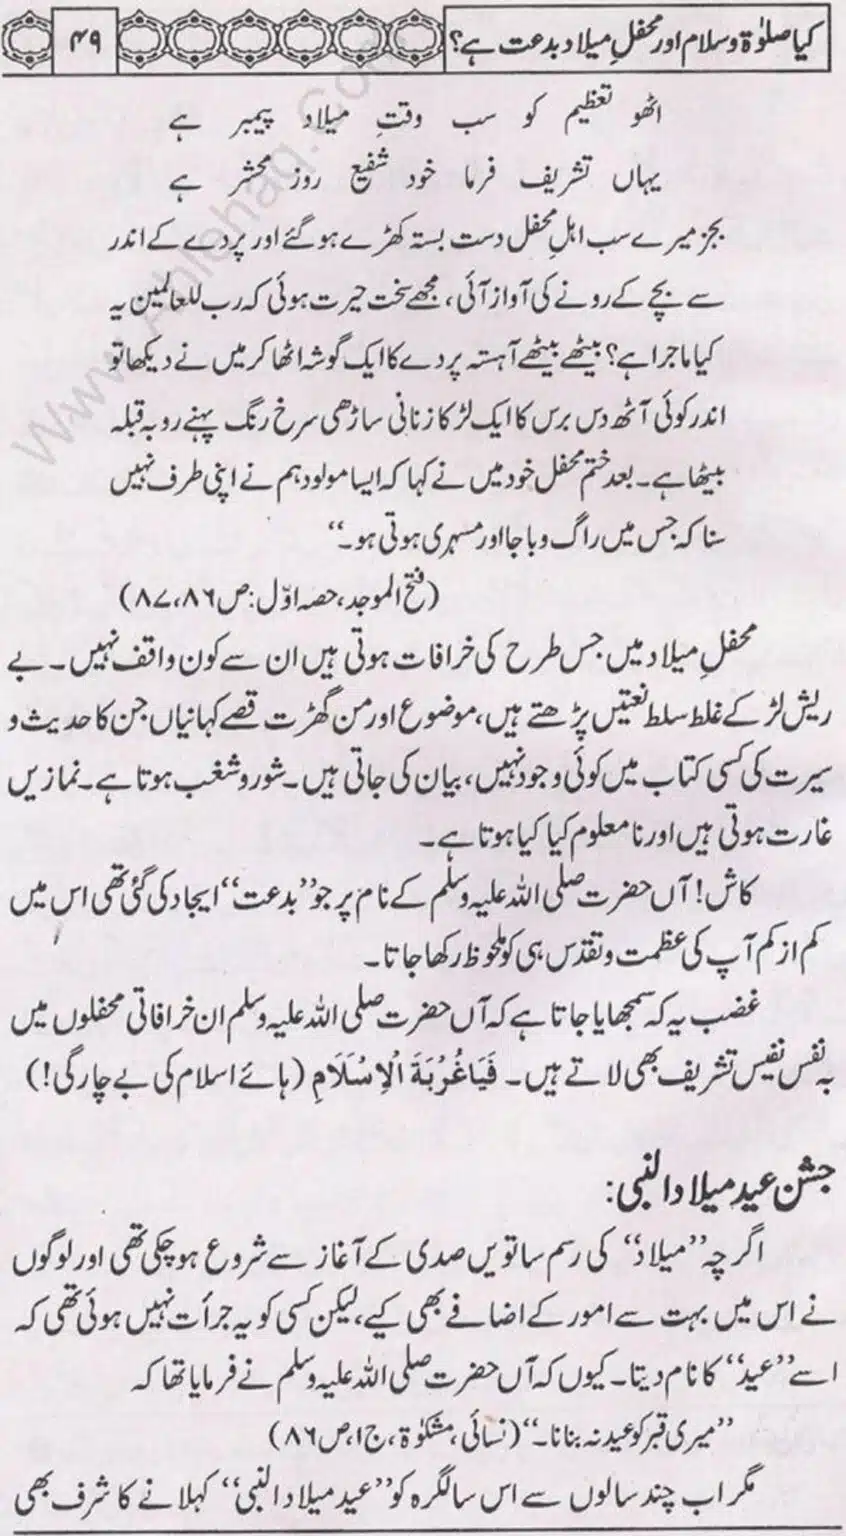 کیا صلوٰۃ وسلام اور محفلِ میلاد بدعت ہے؟
۴۹
اٹھو تعظیم کو سب وقتِ میلاد پیمبر ہے
یہاں تشریف فرما خود شفیع روز محشر ہے
بجز میرے سب اہلِ محفل دست بستہ کھڑے ہوگئے اور پردے کے اندر
سے بچے کے رونے کی آواز آئی، مجھے سخت حیرت ہوئی کہ رب للعالمین یہ
کیا ماجرا ہے؟ بیٹھے بیٹھے آہستہ پردے کا ایک گوشہ اٹھا کر میں نے دیکھا تو
اندر کوئی آٹھ دس برس کا ایک لڑکا زنانی ساڑھی سرخ رنگ پہنے روبہ قبلہ
بیٹھا ہے۔ بعد ختم محفل خود میں نے کہا کہ ایسا مولود ہم نے اپنی طرف نہیں
سنا کہ جس میں راگ و باجا اور مسہری ہوتی ہو۔‘‘
(فتح الموجد، حصہ اوّل: ص ۸۶، ۸۷)
محفلِ میلاد میں جس طرح کی خرافات ہوتی ہیں ان سے کون واقف نہیں۔ بے
ریش لڑکے غلط سلط نعتیں پڑھتے ہیں، موضوع اور من گھڑت قصے کہانیاں جن کا حدیث و
سیرت کی کسی کتاب میں کوئی وجود نہیں، بیان کی جاتی ہیں۔ شور و شغب ہوتا ہے۔ نمازیں
غارت ہوتی ہیں اور نا معلوم کیا کیا ہوتا ہے۔
کاش! آں حضرت صلی اللہ علیہ وسلم کے نام پر جو ’’بدعت‘‘ ایجاد کی گئی تھی اس میں
کم از کم آپ کی عظمت و تقدس ہی کو ملحوظ رکھا جاتا۔
غضب یہ کہ سمجھایا جاتا ہے کہ آں حضرت صلی اللہ علیہ وسلم ان خرافاتی محفلوں میں
بہ نفس نفیس تشریف بھی لاتے ہیں۔ فَیَا غُرْبَۃَ الْاِسْلَامِ (ہائے اسلام کی بے چارگی!)
جشن عید میلاد النبی:
اگرچہ ’’میلاد‘‘ کی رسم ساتویں صدی کے آغاز سے شروع ہوچکی تھی اور لوگوں
نے اس میں بہت سے امور کے اضافے بھی کیے، لیکن کسی کو یہ جرأت نہیں ہوئی تھی کہ
اسے ’’عید‘‘ کا نام دیتا۔ کیوں کہ آں حضرت صلی اللہ علیہ وسلم نے فرمایا تھا کہ
’’میری قبر کو عید نہ بنانا۔‘‘ (نسائی، مشکوٰۃ، ج۱، ص ۸۶)
مگر اب چند سالوں سے اس سالگرہ کو ’’عید میلاد النبی‘‘ کہلانے کا شرف بھی
www.Ahlehaq.Com